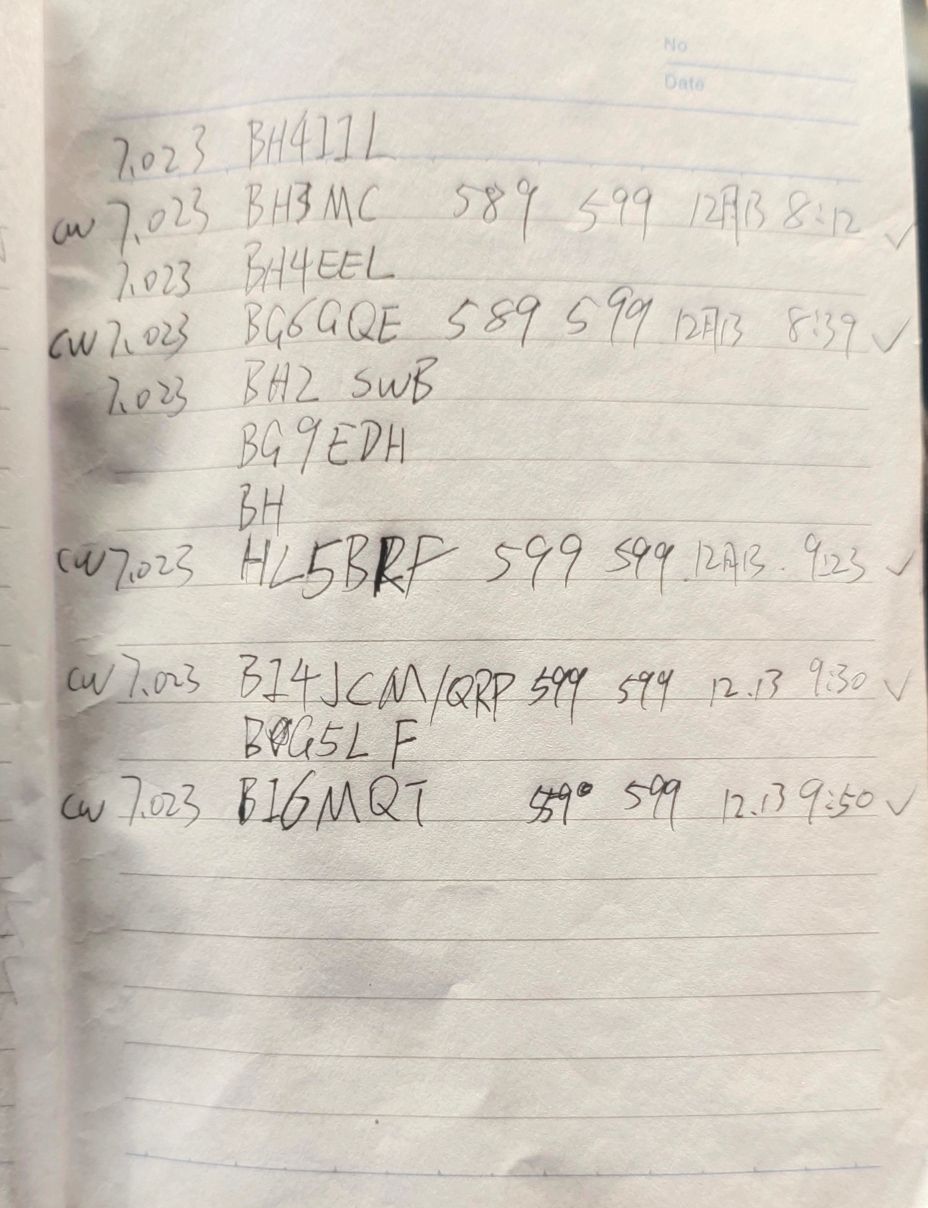 No
Date
7.023 BH4IIL
CW 7.023 BH3MC 589 599 12月13 8:12 ✓
7.023 BH4EEL
CW 7.023 BG6GQE 589 599 12月13 8:39 ✓
7.023 BH2 SWB
BG9EDH
BH
CW 7.023 HL5BRF 599 599 12月13. 9:23 ✓
CW 7.023 BI4JCM/QRP 599 599 12.13 9:30 ✓
BG5LF
CW 7.023 BI6MQT 599 12.13 9:50 ✓